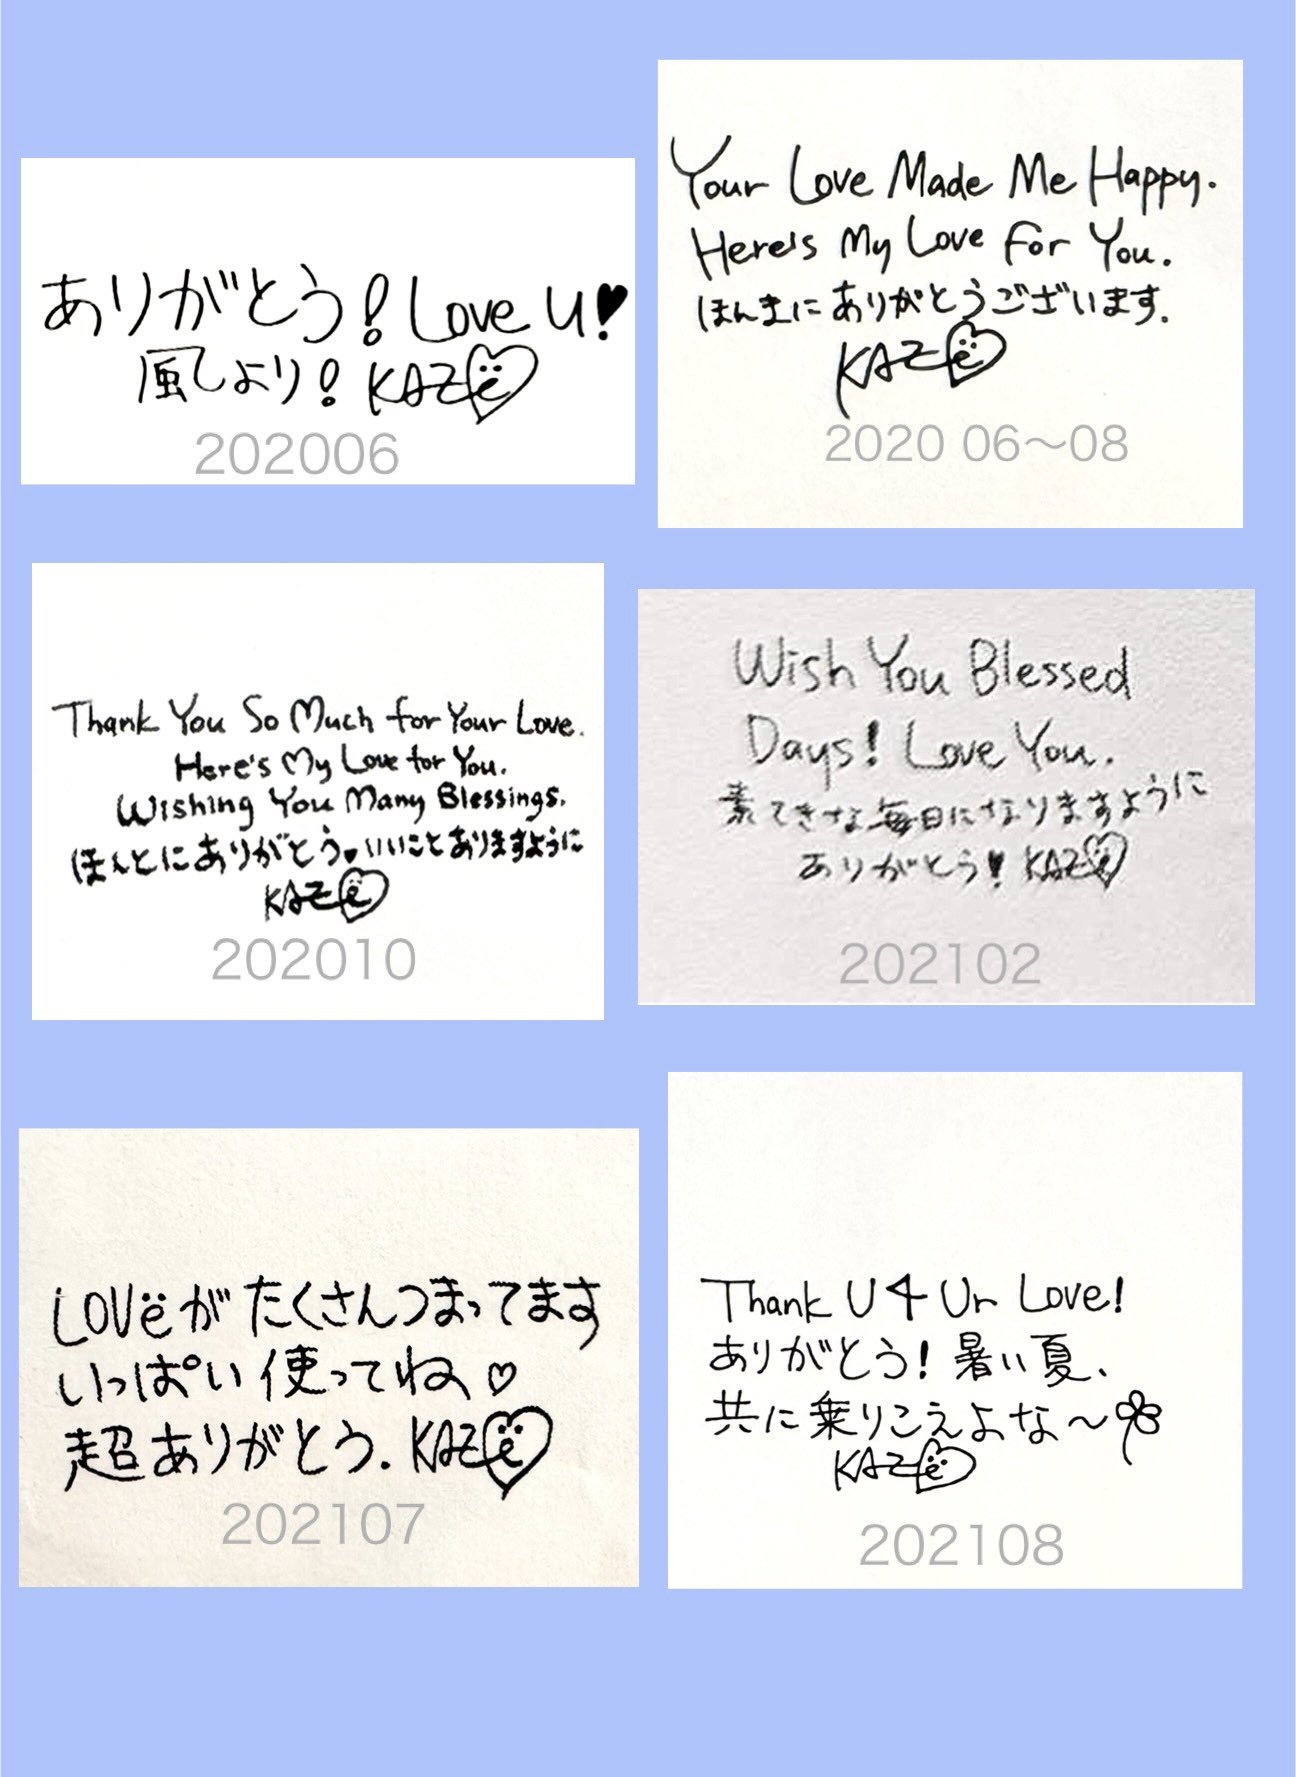 ありがとう!Love U!
風しより!KAZe
202006
Your Love Made Me Happy.
Here's My Love For You.
ほんまにありがとうございます.
KAZe
2020 06〜08
Thank You So Much for Your Love.
Here's My Love for You.
Wishing You Many Blessings.
ほんとにありがとう♥いいことありますように
KAZe
202010
Wish You Blessed
Days! Love You.
素てきな毎日になりますように
ありがとう! KAZe
202102
LOVëがたくさんつまってます
いっぱい使ってね♡
超ありがとう.KAZe
202107
Thank U 4 Ur Love!
ありがとう!暑い夏、
共に乗りこえよな〜
KAZe
202108